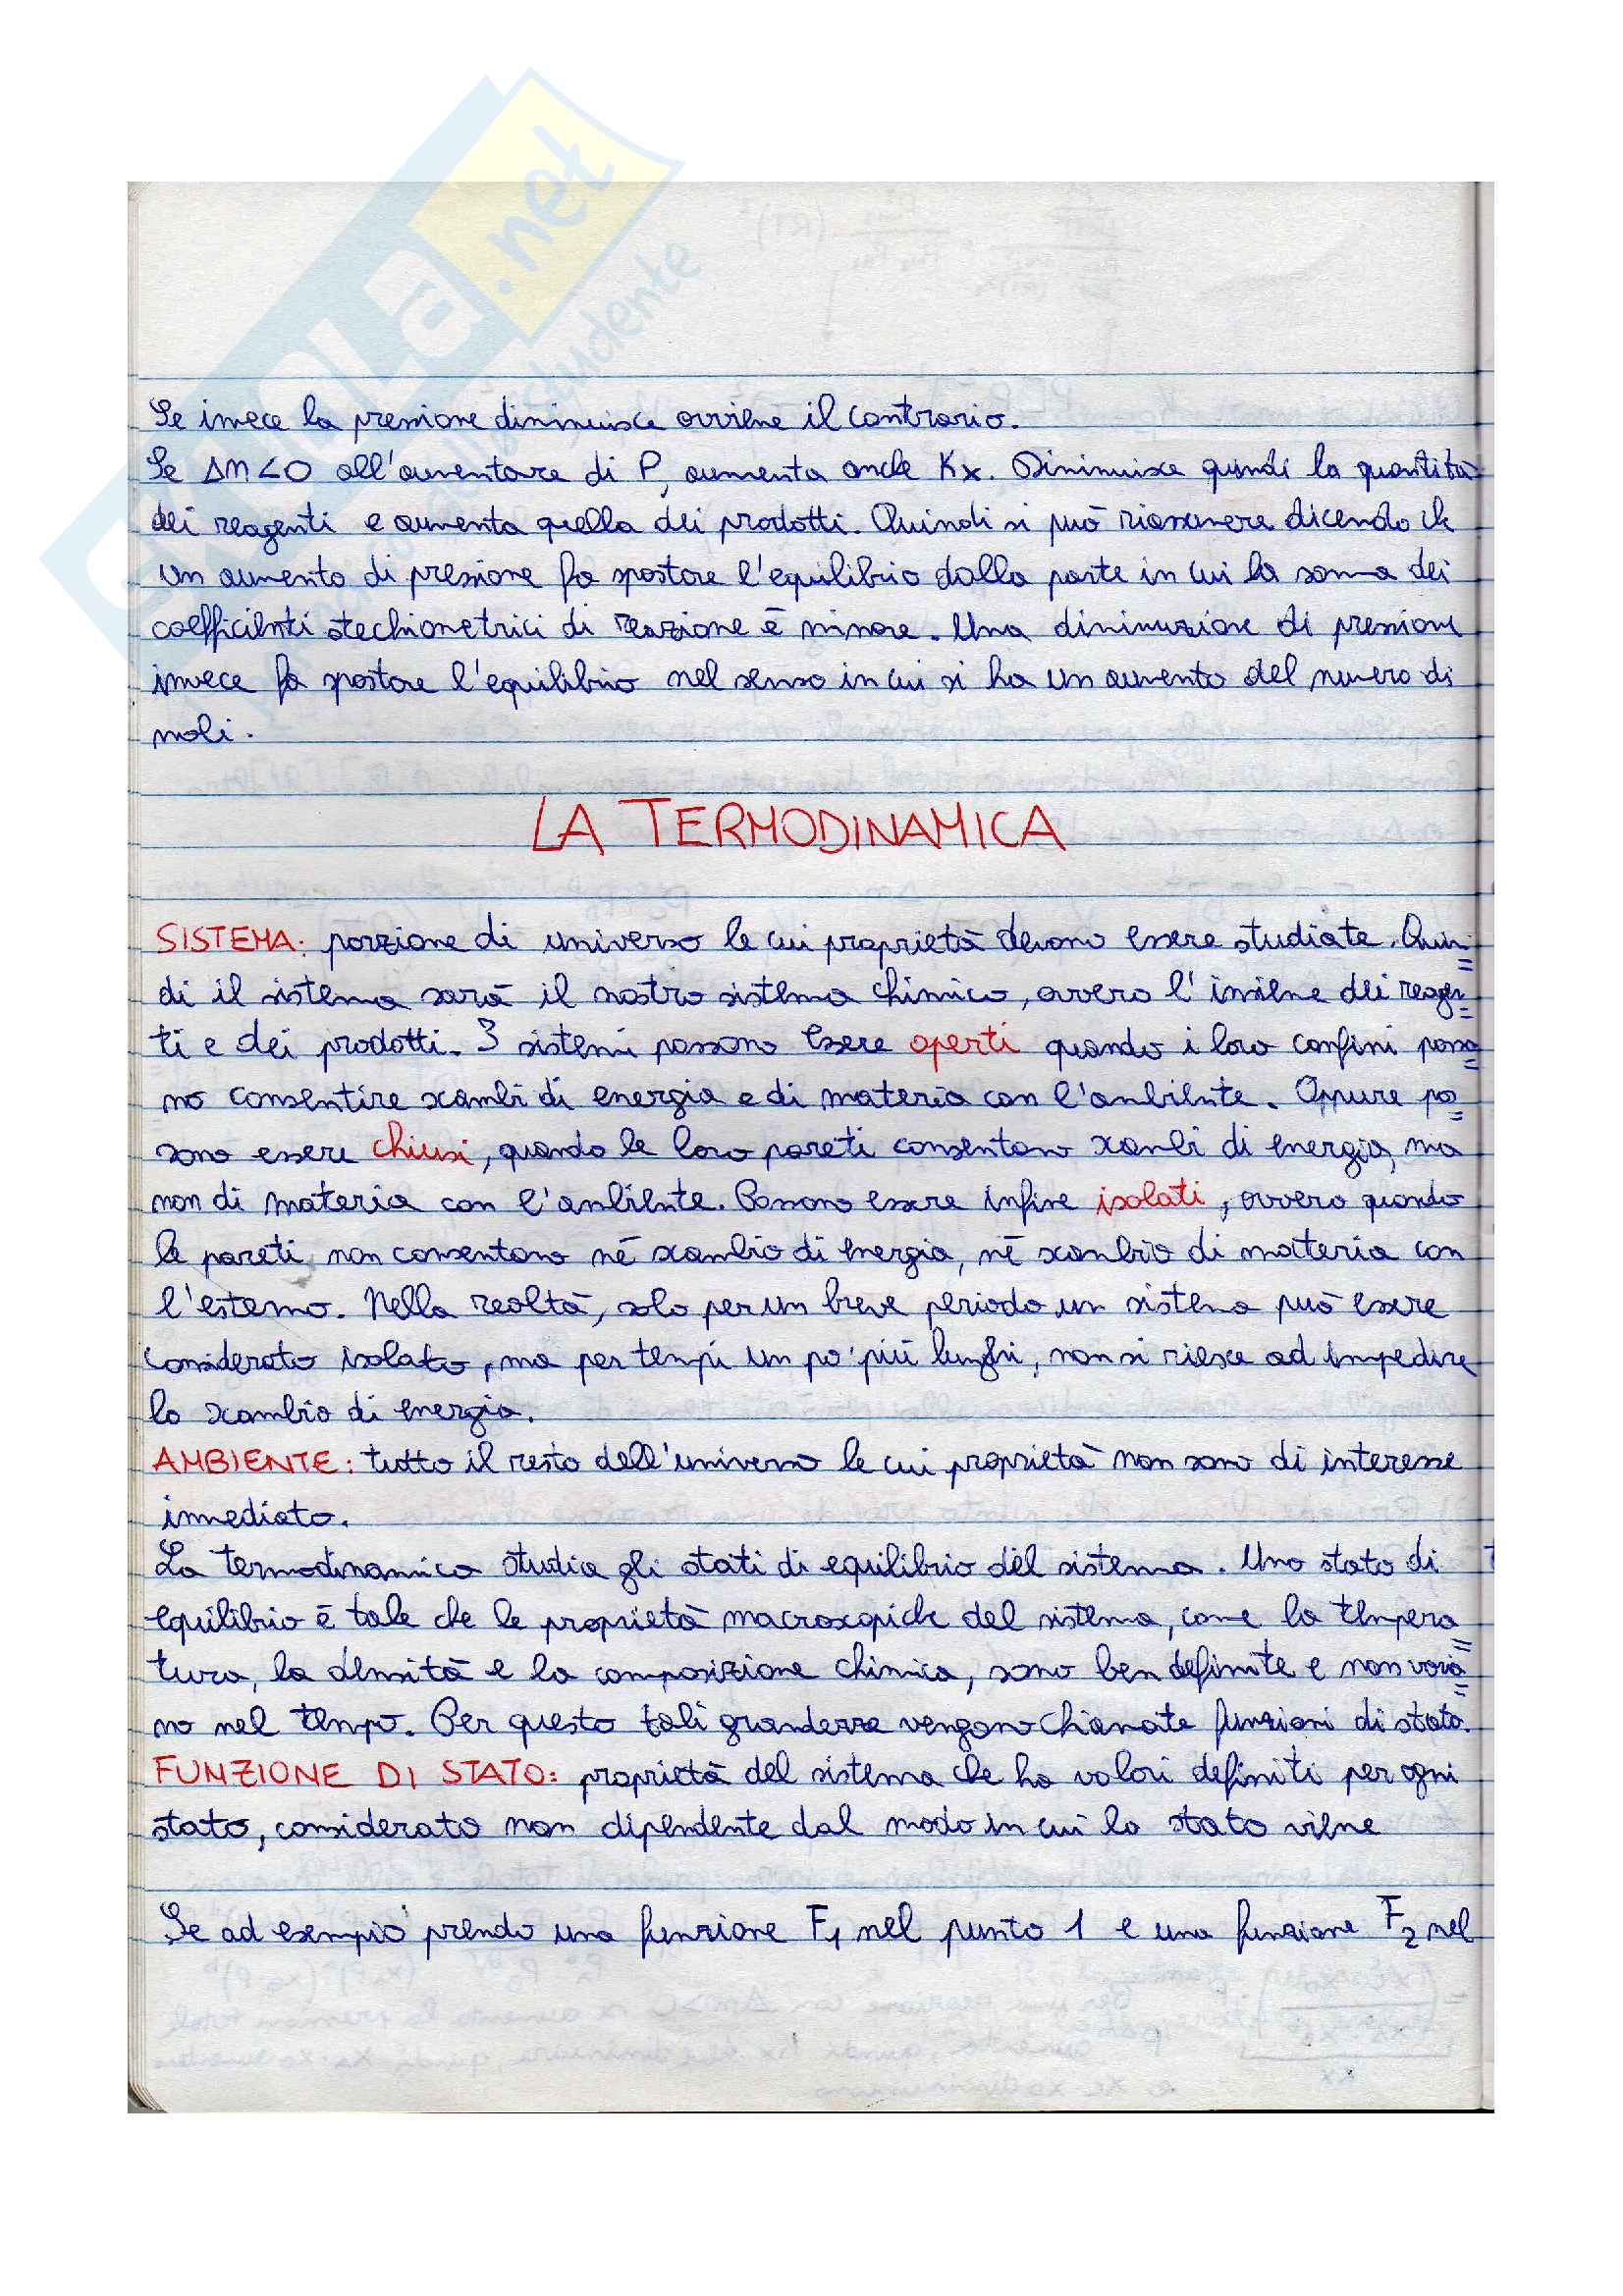 SKUOLA.net
Se invece la pressione diminuisce avviene il contrario.
Se Δn<0 all'aumentare di P, aumenta anche Kx. Diminuisce quindi la quantità
dei reagenti e aumenta quella dei prodotti. Quindi si può riassumere dicendo che
un aumento di pressione fa spostare l'equilibrio dalla parte in cui la somma dei
coefficienti stechiometrici di reazione è minore. Una diminuzione di pressione
invece fa spostare l'equilibrio nel senso in cui si ha un aumento del numero di
moli.
LA TERMODINAMICA
SISTEMA: porzione di universo le cui proprietà devono essere studiate. Quin=
di il sistema sarà il nostro sistema chimico, ovvero l'insieme dei reagen=
ti e dei prodotti. I sistemi possono essere aperti quando i loro confini posso=
no consentire scambi di energia e di materia con l'ambiente. Oppure po=
sono essere chiusi, quando le loro pareti consentono scambi di energia, ma
non di materia con l'ambiente. Possono essere infine isolati, ovvero quando
le pareti non consentono né scambio di energia, né scambio di materia con
l'esterno. Nella realtà, solo per un breve periodo un sistema può essere
considerato isolato, ma per tempi un po' più lunghi, non si riesce ad impedire
lo scambio di energia.
AMBIENTE: tutto il resto dell'universo le cui proprietà non sono di interesse
immediato.
La termodinamica studia gli stati di equilibrio del sistema. Uno stato di
equilibrio è tale che le proprietà macroscopiche del sistema, come la tempera=
tura, la densità e la composizione chimica, sono ben definite e non varia=
no nel tempo. Per questo tali grandezze vengono chiamate funzioni di stato.
FUNZIONE DI STATO: proprietà del sistema che ha valori definiti per ogni
stato, considerato non dipendente dal modo in cui lo stato viene
Se ad esempio prendo una funzione F1 nel punto 1 e una funzione F2 nel